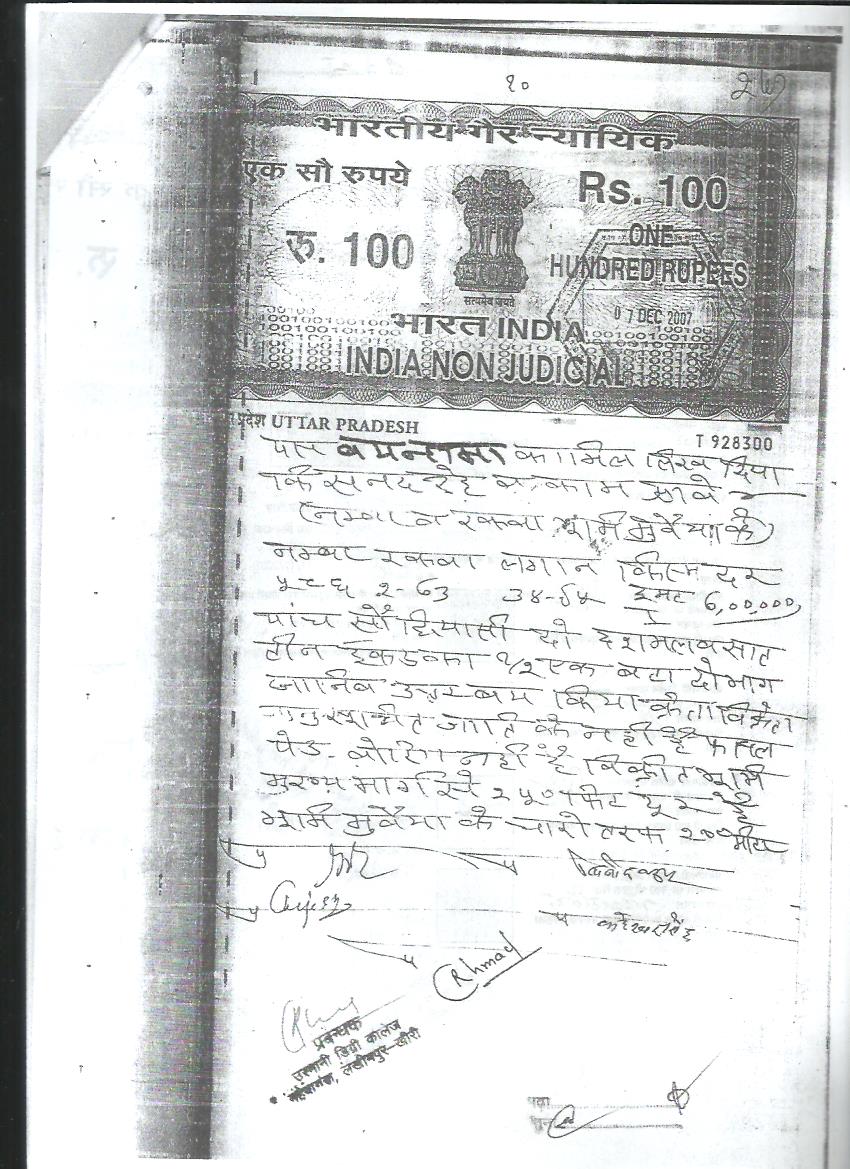 १०
भारतीय गैर न्यायिक
एक सौ रुपये
Rs. 100
रु. 100
ONE
HUNDRED RUPEES
सत्यमेव जयते
07 DEC 2007
भारत INDIA
INDIA NON JUDICIAL
प्रदेश UTTAR PRADESH
T 928300
बयनामा का मिल लिख दिया
कि सनद रहे व काम आवे
नम्बर व रकबा ग्राम मुबैया के
नम्बर रकबा लगान किस्म दर
५८६ २-६३ ३४-६५ ६,००,०००
पांच सौ छियासी दो दशमलव सात
तीन इकड का १/२ एक बटा दो भाग
जानिब उत्तर बय किया क्रेता विक्रेता
अनुसूचित जाति के नहीं है
पेड़ नहीं है विक्रीत भूमि
मुख्य मार्ग से २५० फिट दूर है
ग्राम मुबैया के चारो तरफ २०० मीटर
Rhmad
प्रबन्धक
उस्मानी डिग्री कालेज
लखीमपुर-खीरी